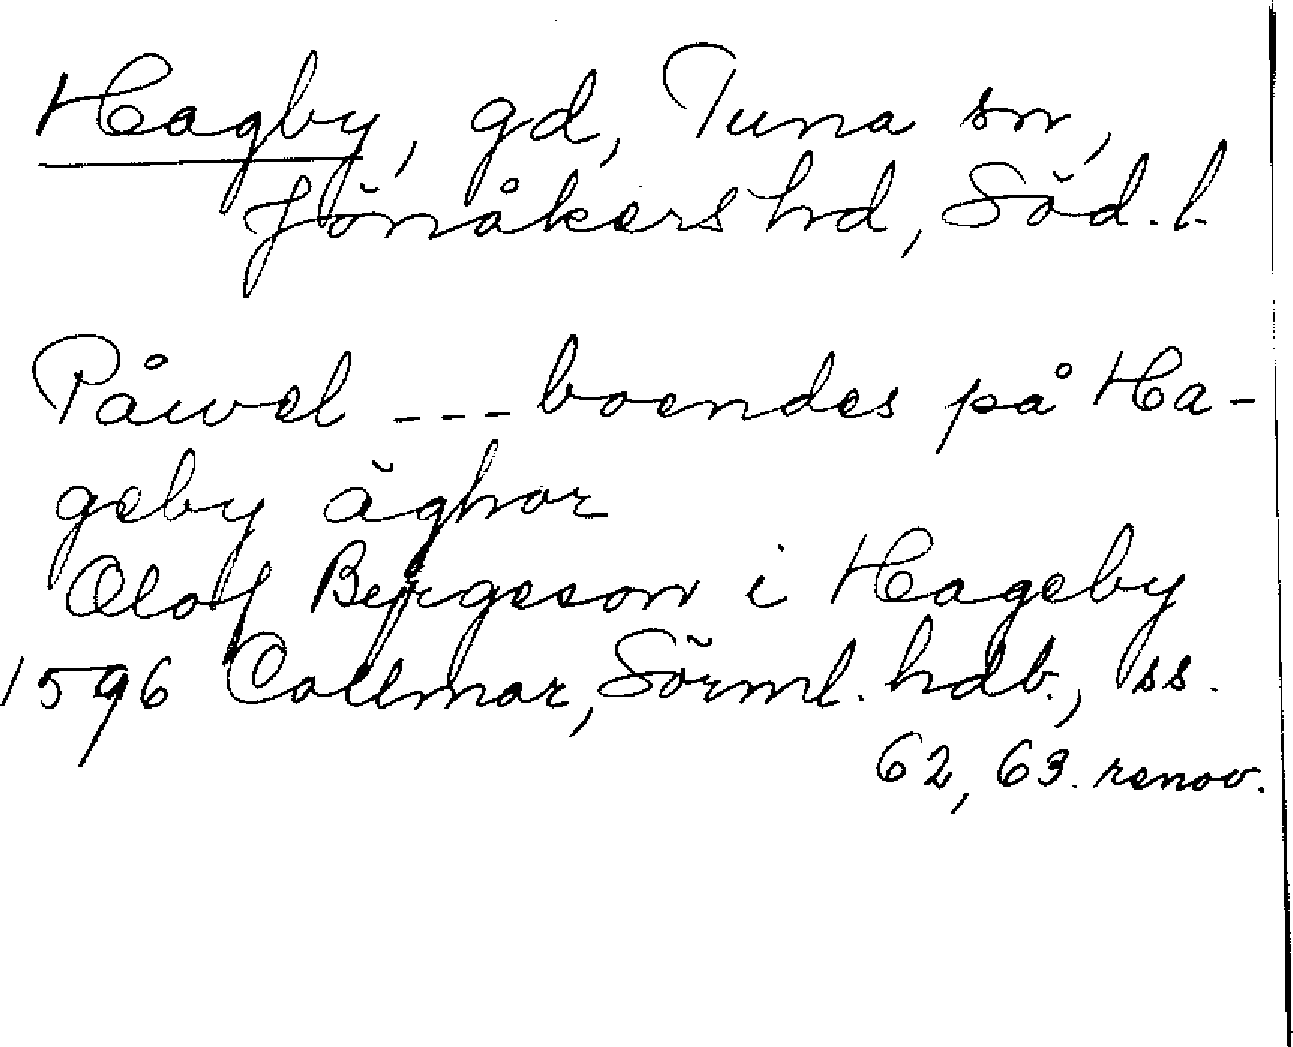 Hagby, gd, Tuna sn,
Jönåkers hd, Söd. l.
Påwel --- boendes på Ha-
geby äghor
Olof Byrgeson i Hageby
1596 Collmar, Sörml. hdb., ss.
62, 63. renov.